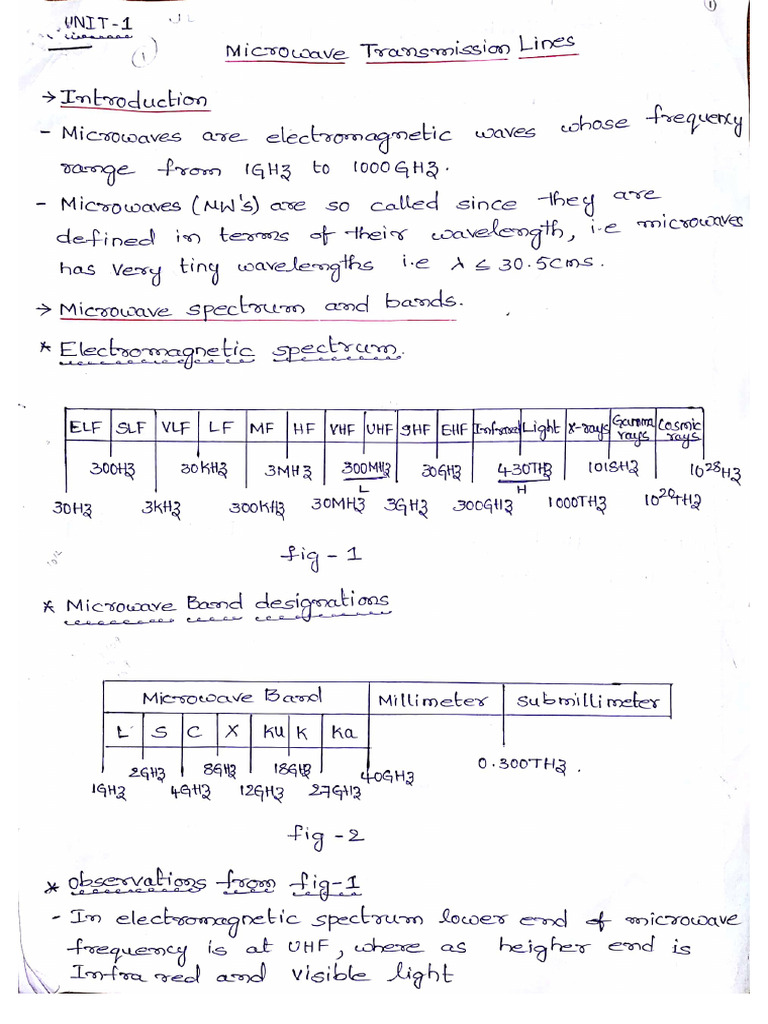 UNIT-1
①
①
Microwave Transmission Lines
→ Introduction
- Microwaves are electromagnetic waves whose frequency
range from 1GHz to 1000GHz.
- Microwaves (MW's) are so called since they are
defined in terms of their wavelength, i.e microwaves
has very tiny wavelengths i.e λ ≤ 30.5cms.
→ Microwave spectrum and bands.
* Electromagnetic spectrum.
ELF SLF VLF LF MF HF VHF UHF SHF EHF Infrared Light X-rays Gamma rays Cosmic rays
300Hz 30KHz 3MHz 300MHz 30GHz 430THz 1018Hz 10²⁸Hz
L H
30Hz 3KHz 300KHz 30MHz 3GHz 300GHz 1000THz 10²⁰THz
fig - 1
* Microwave Band designations
Microwave Band Millimeter Submillimeter
L S C X Ku K Ka
2GHz 8GHz 18GHz 40GHz 0.300THz.
1GHz 4GHz 12GHz 27GHz
fig -2
* Observations from fig-1
- In electromagnetic spectrum lower end of microwave
frequency is at UHF, where as heigher end is
Infra red and visible light